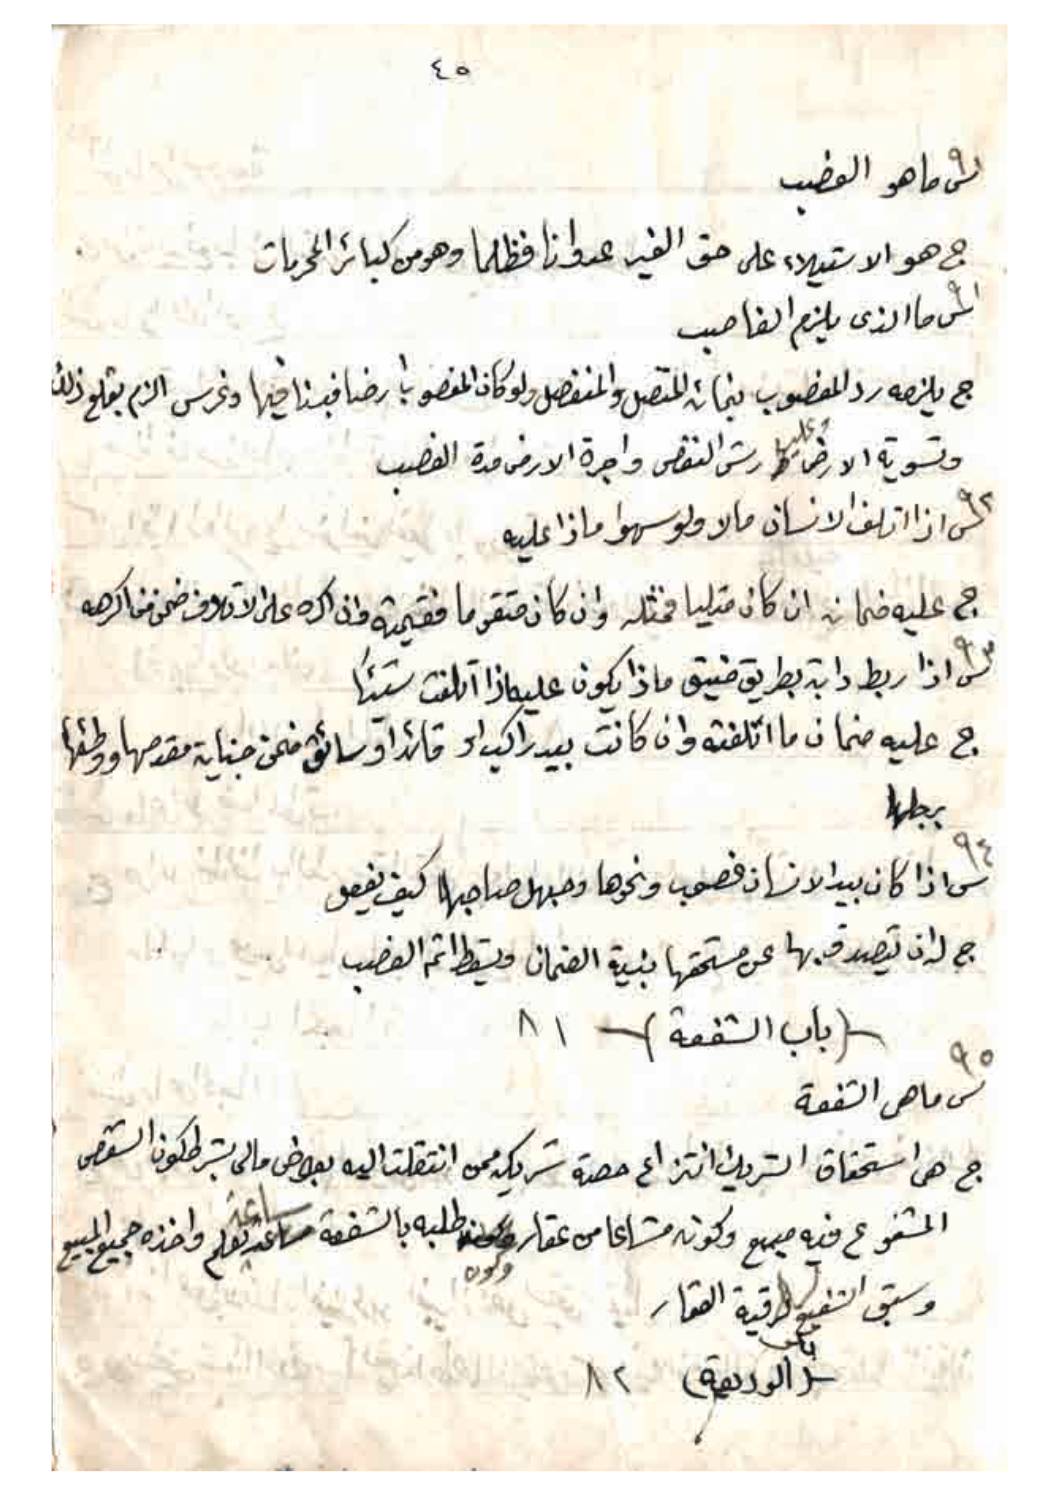 ٤٥
٩٠ س ما هو الغضب
ج هو الاستيلاء على حق الغير عدوانا فظلما وهو من كبائر المحرمات
٩١ س ما الذى يلزم الغاصب
ج يلزمه رد المغضوب بنمائه المتصل والمنفصل ولو كان المغصوب أرضا فبنا فيها وغرس الزم بقلع ذلك
وتسوية الارض وعليه رش النقص واجرة الارض مدة الغضب
٩٢ س اذا اتلف الانسان مالا ولو سهوا ماذا عليه
ج عليه ضمانه ان كان مثليا فمثله وان كان متقوما فقيمته وان اكره على الاتلاف ضمن من اكرهه
٩٣ س اذا ربط دابة بطريق ضيق ماذا يكون عليه اذا اتلفت شيئا
ج عليه ضمان ما اتلفته وان كانت بيد راكب او قائد او سائق ضمن جناية مقدمها ووطئها
برجلها
٩٤ س اذا كان بيد الانسان غصوب ونحوها وجهل صاحبها كيف يفعل
ج له ان يتصدق بها عن مستحقها بنية الضمان ويسقط اثم الغضب
(باب الشفعة) ٨١
٩٥ س ما هى الشفعة
ج هى استحقاق الشريك انتزاع حصة شريكه ممن انتقلت اليه بعوض مالى بشرط كون الشقص
المشفوع فيه مبيع وكونه مشاعا من عقار وكون طلبه بالشفعة ساعة يعلم واخذه جميع المبيع
وسبق الشفيع لرقبة العقار
(باب الوديعة) ٨٢